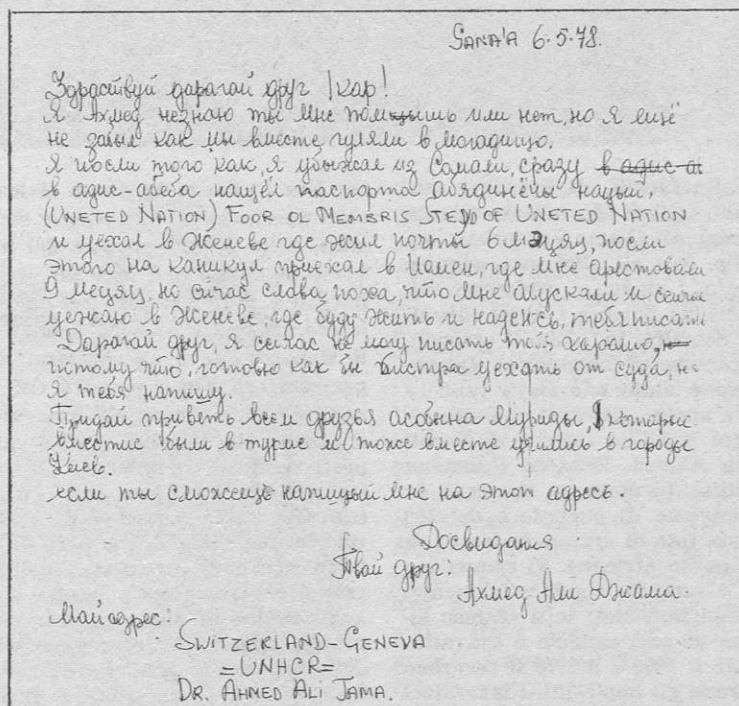 SANA'A 6.5.78.
Здраствуй дарагай друг Iкар!
Я Ахмед незнаю ты мне помнишь или нет, но я ещё
не забыл как мы вместе гуляли в могадищо.
Я посли того как, я уыжал из Сомали, сразу в адис ав
в адис-абеба нащёл паспорта абядинёны нацый.
(UNETED NATION) FOOR OL MEMBRIS STEYD OF UNETED NATION
и уехал в Женеве где жил почты 6 мэцяц, посли
этого на каникул приехал в Иемен, где мне арестовали
9 мецяц, но сичас слава, поха, что мне атускали и сейчас
уежаю в Женеве, где буду жить и надеюсь, тебя писать
Дарагай друг, я сейчас не могу писать тебя харашо,
потому что, готовлю как бы быстра уехать от суда, но
я тебя напишу.
Придай приветь всем друзья асобына Муриды, которые
вместис были в турме и тоже вместе учились в городы
Киев.
если ты сможещь напищый мне на этот адресь.
Досвидания
Твай друг:
Ахмед Али Джама.
Май адрес:
SWITZERLAND-GENEVA
=UNHCR=
DR. AHMED ALI JAMA.